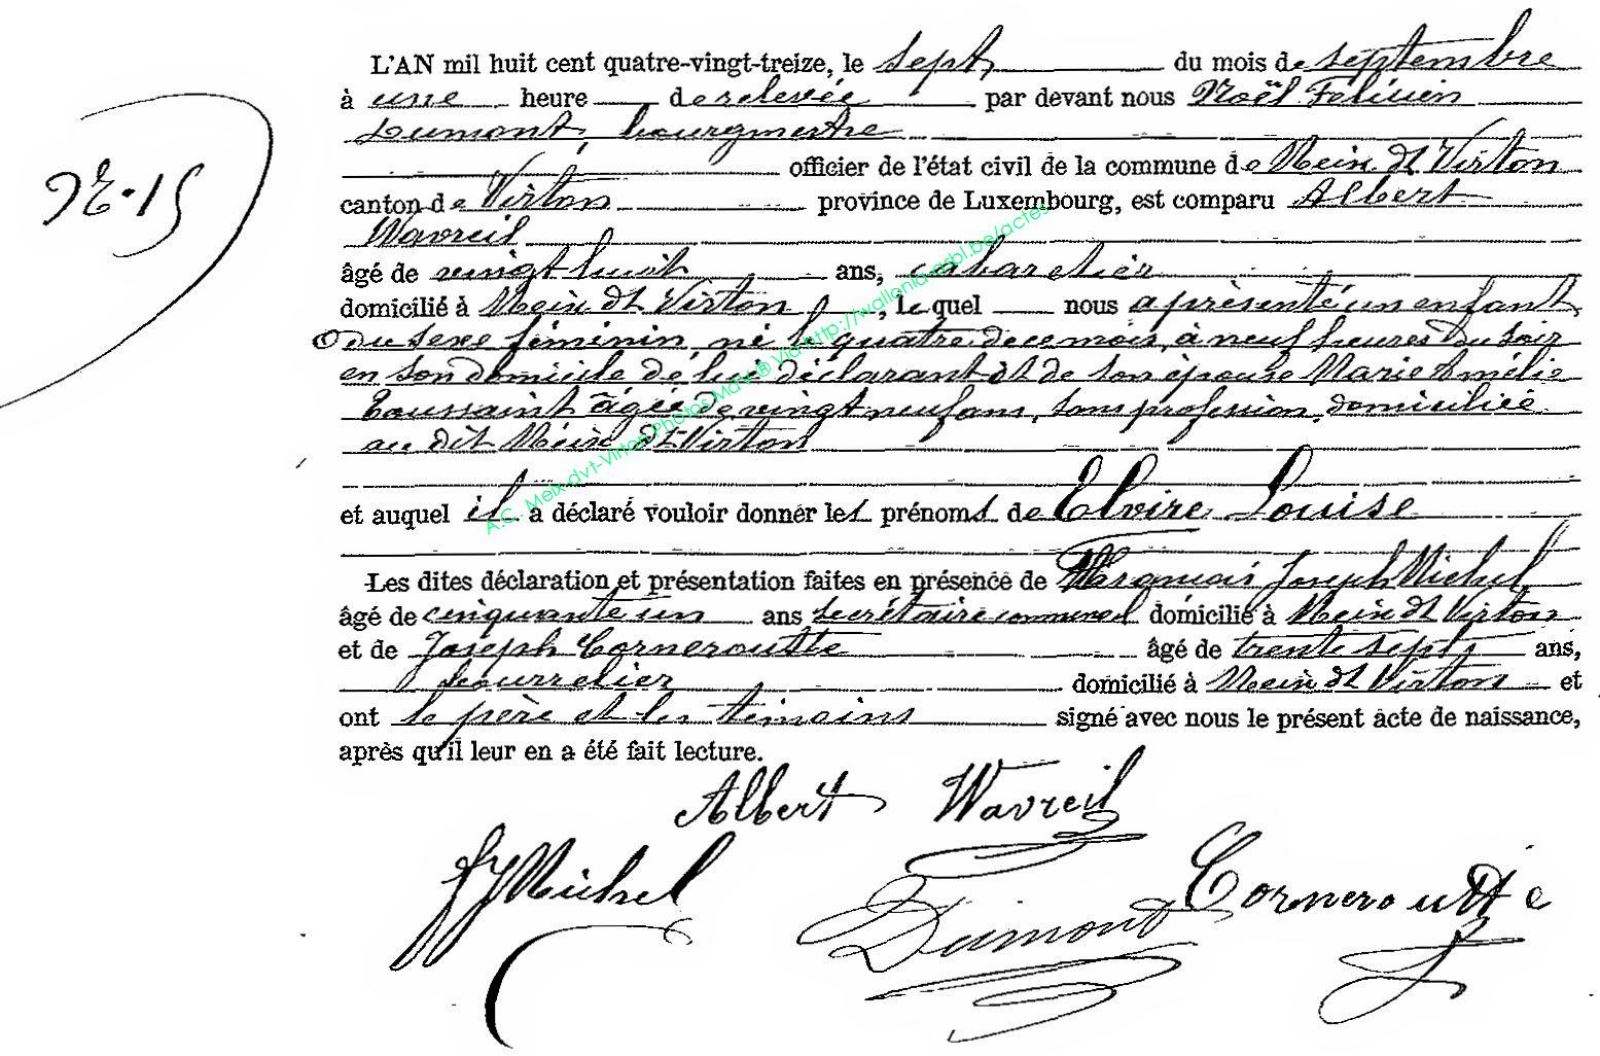 L'AN mil huit cent quatre-vingt-treize, le sept du mois de septembre
à une heure de relevée par devant nous Noël Félicien
Dumont, bourgmestre
officier de l'état civil de la commune de Meix dt Virton
canton de Virton province de Luxembourg, est comparu Albert
Wavreil
âgé de vingt huit ans, cabaretier
domicilié à Meix dt Virton, le quel nous a présenté un enfant
du sexe féminin, né le quatre de ce mois, à neuf heures du soir
en son domicile de lui déclarant et de son épouse Marie Amélie
Toussaint âgée de vingt neuf ans, sans profession, domiciliée
au dit Meix dt Virton
et auquel il a déclaré vouloir donner les prénoms de Elvire Louise
Les dites déclaration et présentation faites en présence de Joseph Michel
âgé de cinquante un ans secrétaire communal domicilié à Meix dt Virton
et de Joseph Cornerotte âgé de trente sept ans,
bourrelier domicilié à Meix dt Virton et
ont le père et les témoins signé avec nous le présent acte de naissance,
après qu'il leur en a été fait lecture.
Albert Wavreil
Michel Dumont Cornerotte
No. 15
A.C. Meix-dvt-Virton Photos Via http://wallonia-asbl.be/actes